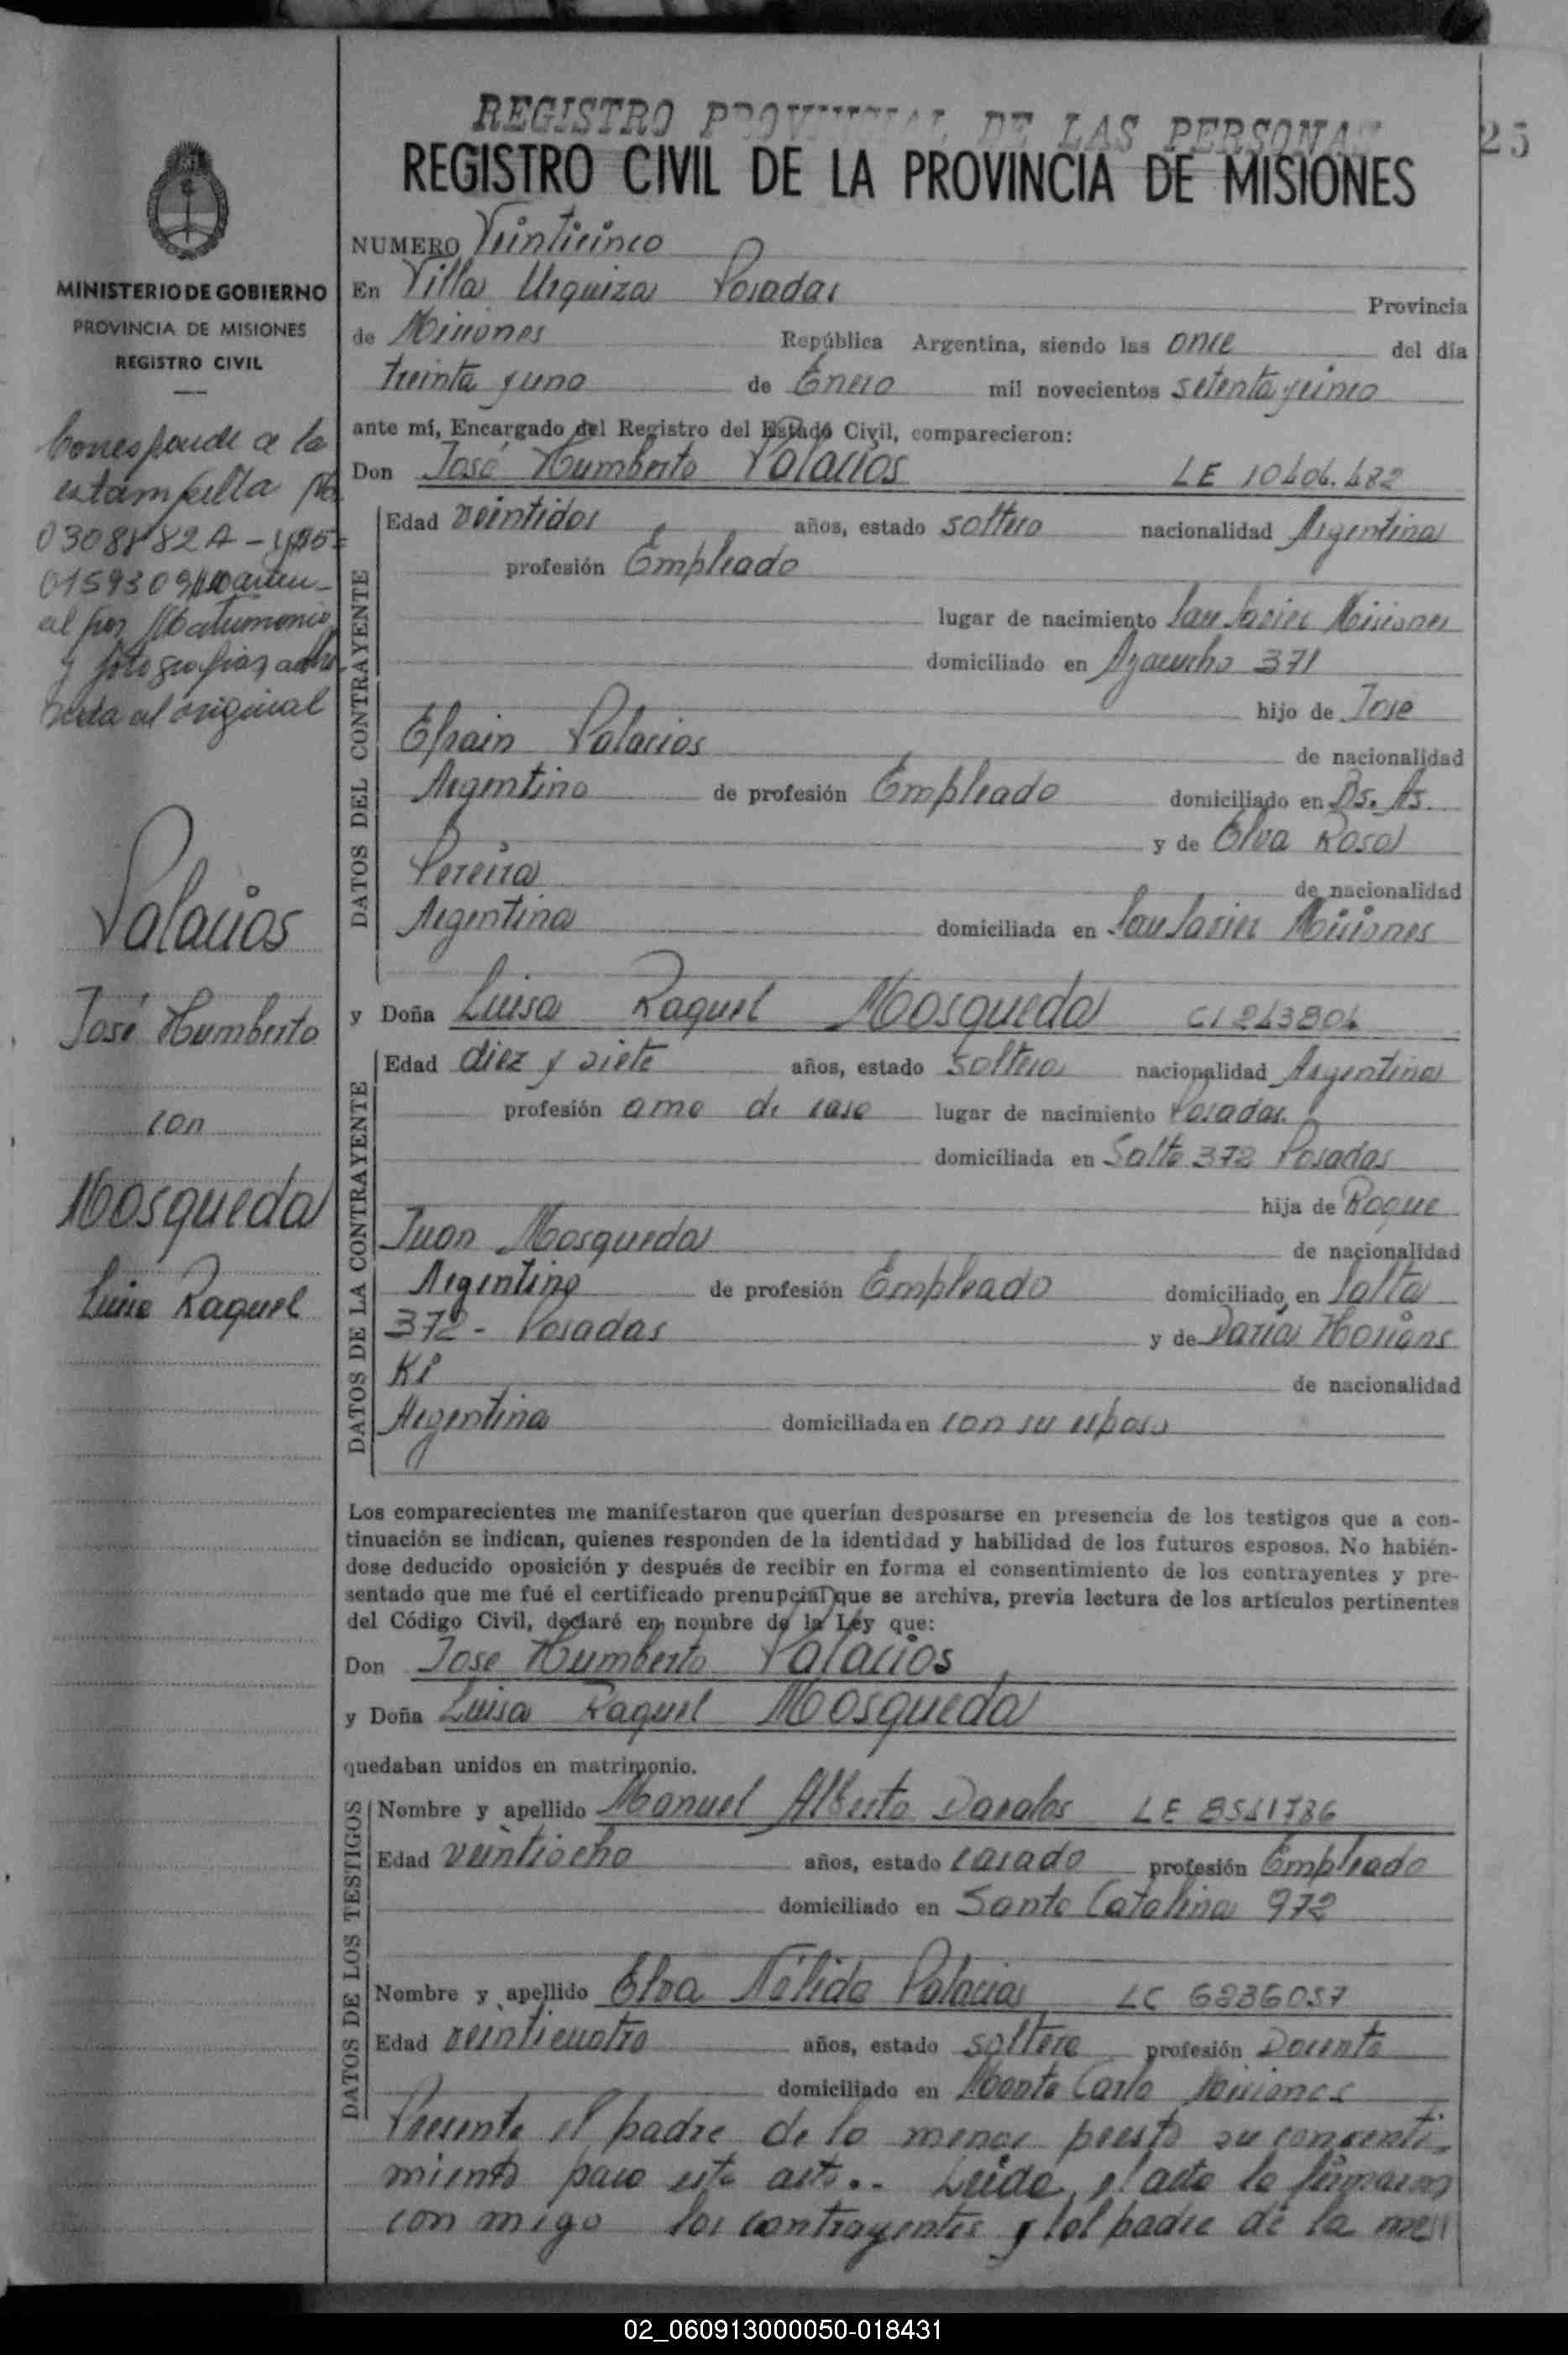 REGISTRO PROVINCIAL DE LAS PERSONAS
25
REGISTRO CIVIL DE LA PROVINCIA DE MISIONES
MINISTERIO DE GOBIERNO
PROVINCIA DE MISIONES
REGISTRO CIVIL
Corresponde a la
estampilla
0308882A -
0159309
al por Matrimonio
y fotografias adhe
rida al original
Palacios
José Humberto
con
Mosqueda
Luisa Raquel
NUMERO Veinticinco
En Villa Urquiza Posadas Provincia
de Misiones República Argentina, siendo las once del día
treinta y uno de Enero mil novecientos setenta y cinco
ante mí, Encargado del Registro del Estado Civil, comparecieron:
Don José Humberto Palacios LE 10404.482
DATOS DEL CONTRAYENTE
Edad veintidos años, estado soltero nacionalidad Argentina
profesión Empleado
lugar de nacimiento San Javier Misiones
domiciliado en Ayacucho 371
hijo de Jose
Efrain Palacios de nacionalidad
Argentino de profesión Empleado domiciliado en Bs. As.
y de Elva Rosa
Pereira de nacionalidad
Argentina domiciliada en San Javier Misiones
y Doña Luisa Raquel Mosqueda CI 243804
DATOS DE LA CONTRAYENTE
Edad diez y siete años, estado soltera nacionalidad Argentina
profesión ama de casa lugar de nacimiento Posadas.
domiciliada en Salta 372 Posadas
hija de Roque
Juan Mosqueda de nacionalidad
Argentino de profesión Empleado domiciliado en Salta
372 - Posadas y de Daria
de nacionalidad
Argentina domiciliada en con su esposo
Los comparecientes me manifestaron que querían desposarse en presencia de los testigos que a con-
tinuación se indican, quienes responden de la identidad y habilidad de los futuros esposos. No habién-
dose deducido oposición y después de recibir en forma el consentimiento de los contrayentes y pre-
sentado que me fué el certificado prenupcial que se archiva, previa lectura de los artículos pertinentes
del Código Civil, declaré en nombre de la Ley que:
Don Jose Humberto Palacios
y Doña Luisa Raquel Mosqueda
quedaban unidos en matrimonio.
DATOS DE LOS TESTIGOS
Nombre y apellido Manuel Alberto Davalos LE 8541786
Edad veintiocho años, estado casado profesión Empleado
domiciliado en Santa Catalina 972
Nombre y apellido Elva Nélida Palacios LC 6236057
Edad veinticuatro años, estado soltera profesión Docente
domiciliado en Monte Carlo Misiones
Presente el padre de la menor presto su consenti-
miento para este acto.. Leida el acta la firmaron
con migo los contrayentes y el padre de la men
02_060913000050-018431